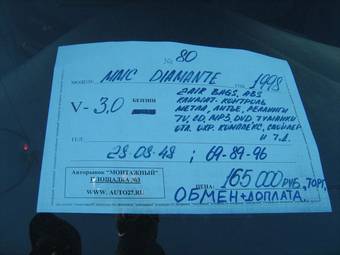 № 80
МОДЕЛЬ: MMC DIAMANTE ГОД 1998
V- 3,0 БЕНЗИН
2AIR BAGS, ABS
КЛИМАТ. КОНТРОЛЬ
МЕТЛА, ЛИТЬЕ, РЕЛИНГИ
TV, CD, MP3, DVD, ТУМАНКИ
ОХР. КОМПЛЕКС, СПОЙЛЕР
И Т.Д.
ТЕЛ 28-08-48 ; 69-89-96
Авторынок "МОНТАЖНЫЙ"
ПЛОЩАДКА №3
WWW.AUTO27.RU
ЦЕНА: 165 000 РУБ., ТОРГ,
ОБМЕН+ДОПЛАТА.